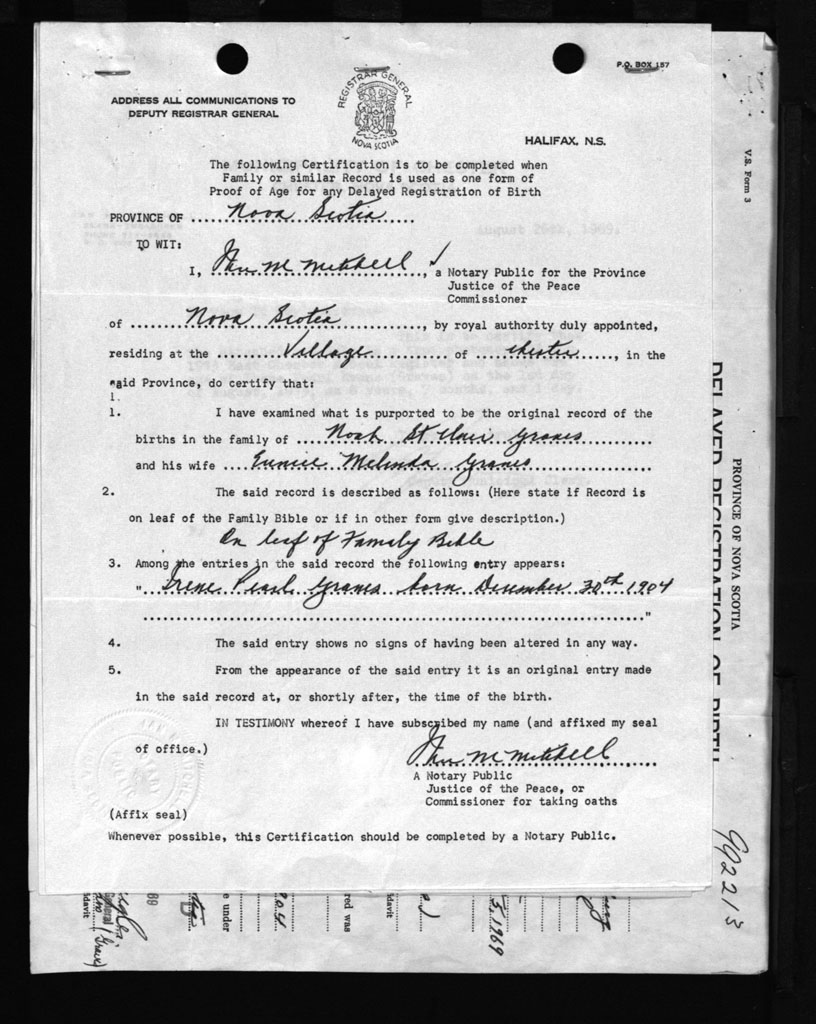 P.O. BOX 157
ADDRESS ALL COMMUNICATIONS TO
DEPUTY REGISTRAR GENERAL
REGISTRAR GENERAL
NOVA SCOTIA
HALIFAX, N.S.
The following Certification is to be completed when
Family or similar Record is used as one form of
Proof of Age for any Delayed Registration of Birth
PROVINCE OF ...... Nova Scotia ......
TO WIT:
I, ...... M Mitchell ......, a Notary Public for the Province
Justice of the Peace
Commissioner
of ........ Nova Scotia .............., by royal authority duly appointed,
residing at the .......... Village ............ of ... Chester ....., in the
said Province, do certify that:
1.
1. I have examined what is purported to be the original record of the
births in the family of ..... Noah St Clair Graves ..........
and his wife .... Eunice Melinda Graves ..................
2. The said record is described as follows: (Here state if Record is
on leaf of the Family Bible or if in other form give description.)
On leaf of Family Bible
3. Among the entries in the said record the following entry appears:
" ... Irene Pearl Graves born December 30th 1904
......................................................................"
4. The said entry shows no signs of having been altered in any way.
5. From the appearance of the said entry it is an original entry made
in the said record at, or shortly after, the time of the birth.
IN TESTIMONY whereof I have subscribed my name (and affixed my seal
of office.)
M Mitchell
A Notary Public
Justice of the Peace, or
Commissioner for taking oaths
(Affix seal)
Whenever possible, this Certification should be completed by a Notary Public.
V.S. Form 3
PROVINCE OF NOVA SCOTIA
DELAYED REGISTRATION OF BIRTH
992213
e under
red was
5, 1969